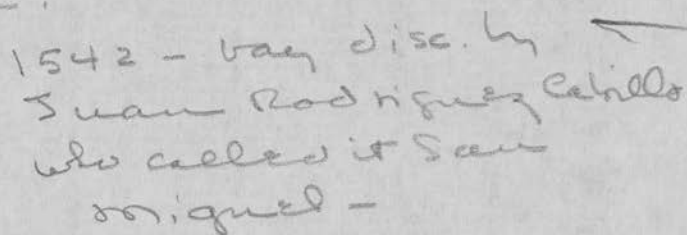 1542 - bay disc. by
Juan Rodriguez Cabrillo
who called it San
Miguel -